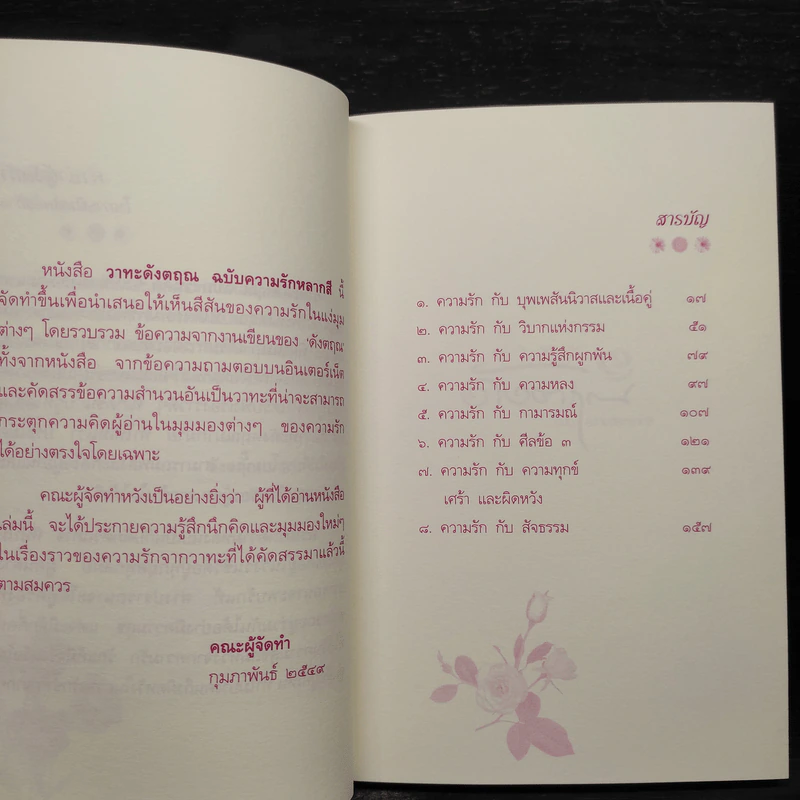 หนังสือ วาทะดังตฤณ ฉบับความรักหลากสี นี้
จัดทำขึ้นเพื่อนำเสนอให้เห็นสีสันของความรักในแง่มุม
ต่างๆ โดยรวบรวม ข้อความจากงานเขียนของ 'ดังตฤณ'
ทั้งจากหนังสือ จากข้อความถามตอบบนอินเตอร์เน็ต
และคัดสรรข้อความสำนวนอันเป็นวาทะที่น่าจะสามารถ
กระตุกความคิดผู้อ่านในมุมมองต่างๆ ของความรัก
ได้อย่างตรงใจโดยเฉพาะ
คณะผู้จัดทำหวังเป็นอย่างยิ่งว่า ผู้ที่ได้อ่านหนังสือ
เล่มนี้ จะได้ประกายความรู้สึกนึกคิดและมุมมองใหม่ๆ
ในเรื่องราวของความรักจากวาทะที่ได้คัดสรรมาแล้วนี้
ตามสมควร
คณะผู้จัดทำ
กุมภาพันธ์ ๒๕๔๙
สารบัญ
๑. ความรัก กับ บุพเพสันนิวาสและเนื้อคู่ ๑๗
๒. ความรัก กับ วิบากแห่งกรรม ๕๑
๓. ความรัก กับ ความรู้สึกผูกพัน ๗๙
๔. ความรัก กับ ความหลง ๙๗
๕. ความรัก กับ กามารมณ์ ๑๐๗
๖. ความรัก กับ ศีลข้อ ๓ ๑๒๑
๗. ความรัก กับ ความทุกข์ ๑๓๙
เศร้า และผิดหวัง
๘. ความรัก กับ สัจธรรม ๑๕๗